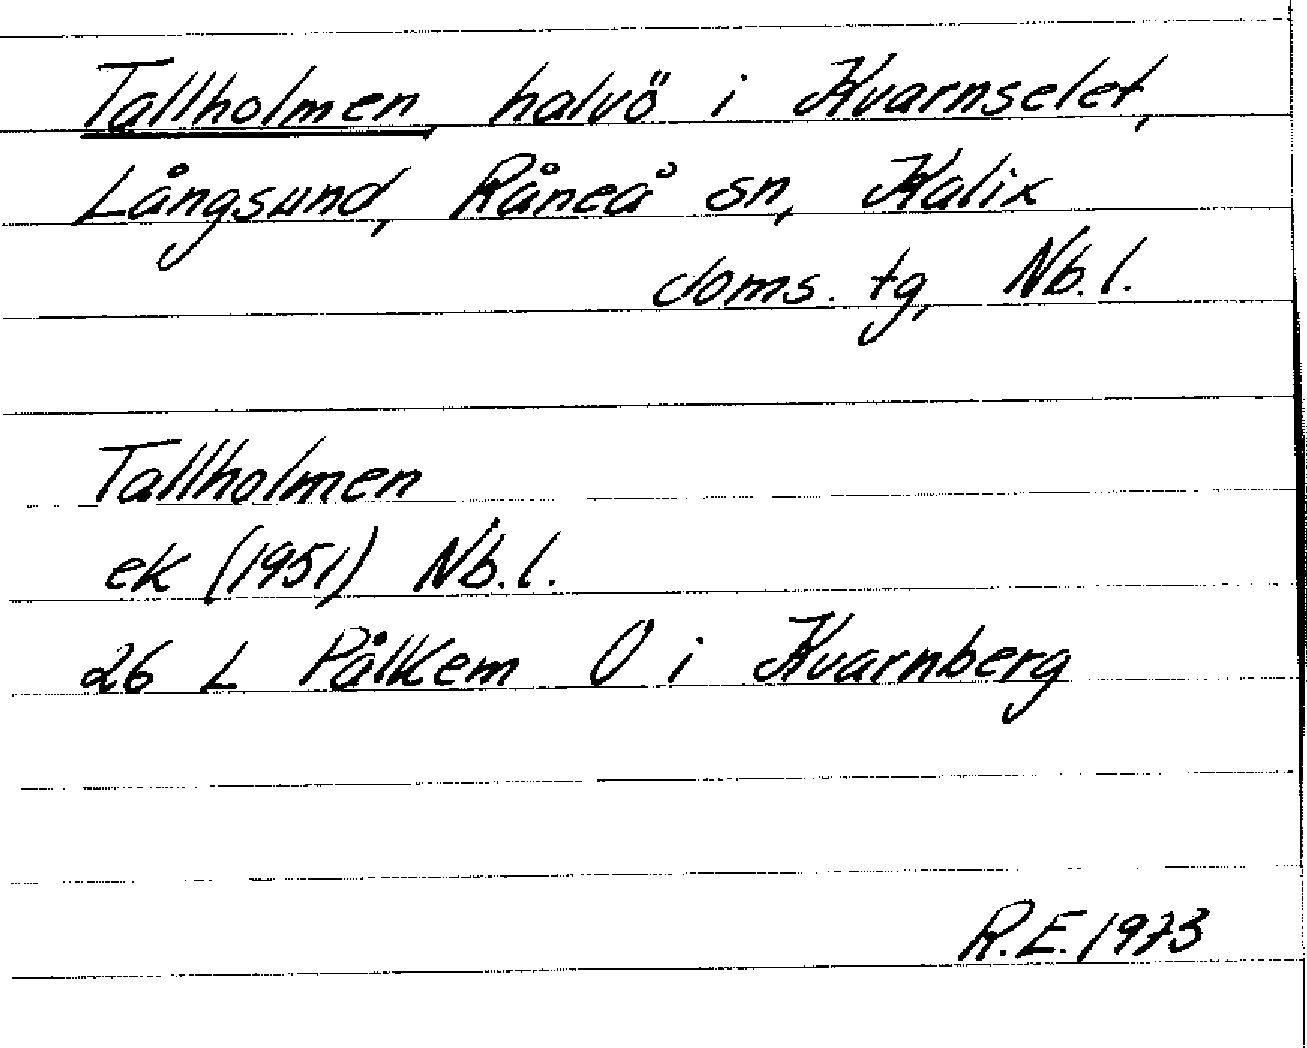 Tallholmen, halvö i Kvarnselet,
Långsund, Råneå sn, Kalix
doms. tg, Nb.l.
Tallholmen
ek (1951) Nb.l.
26 L Pålkem O i Kvarnberg
R.E. 1973